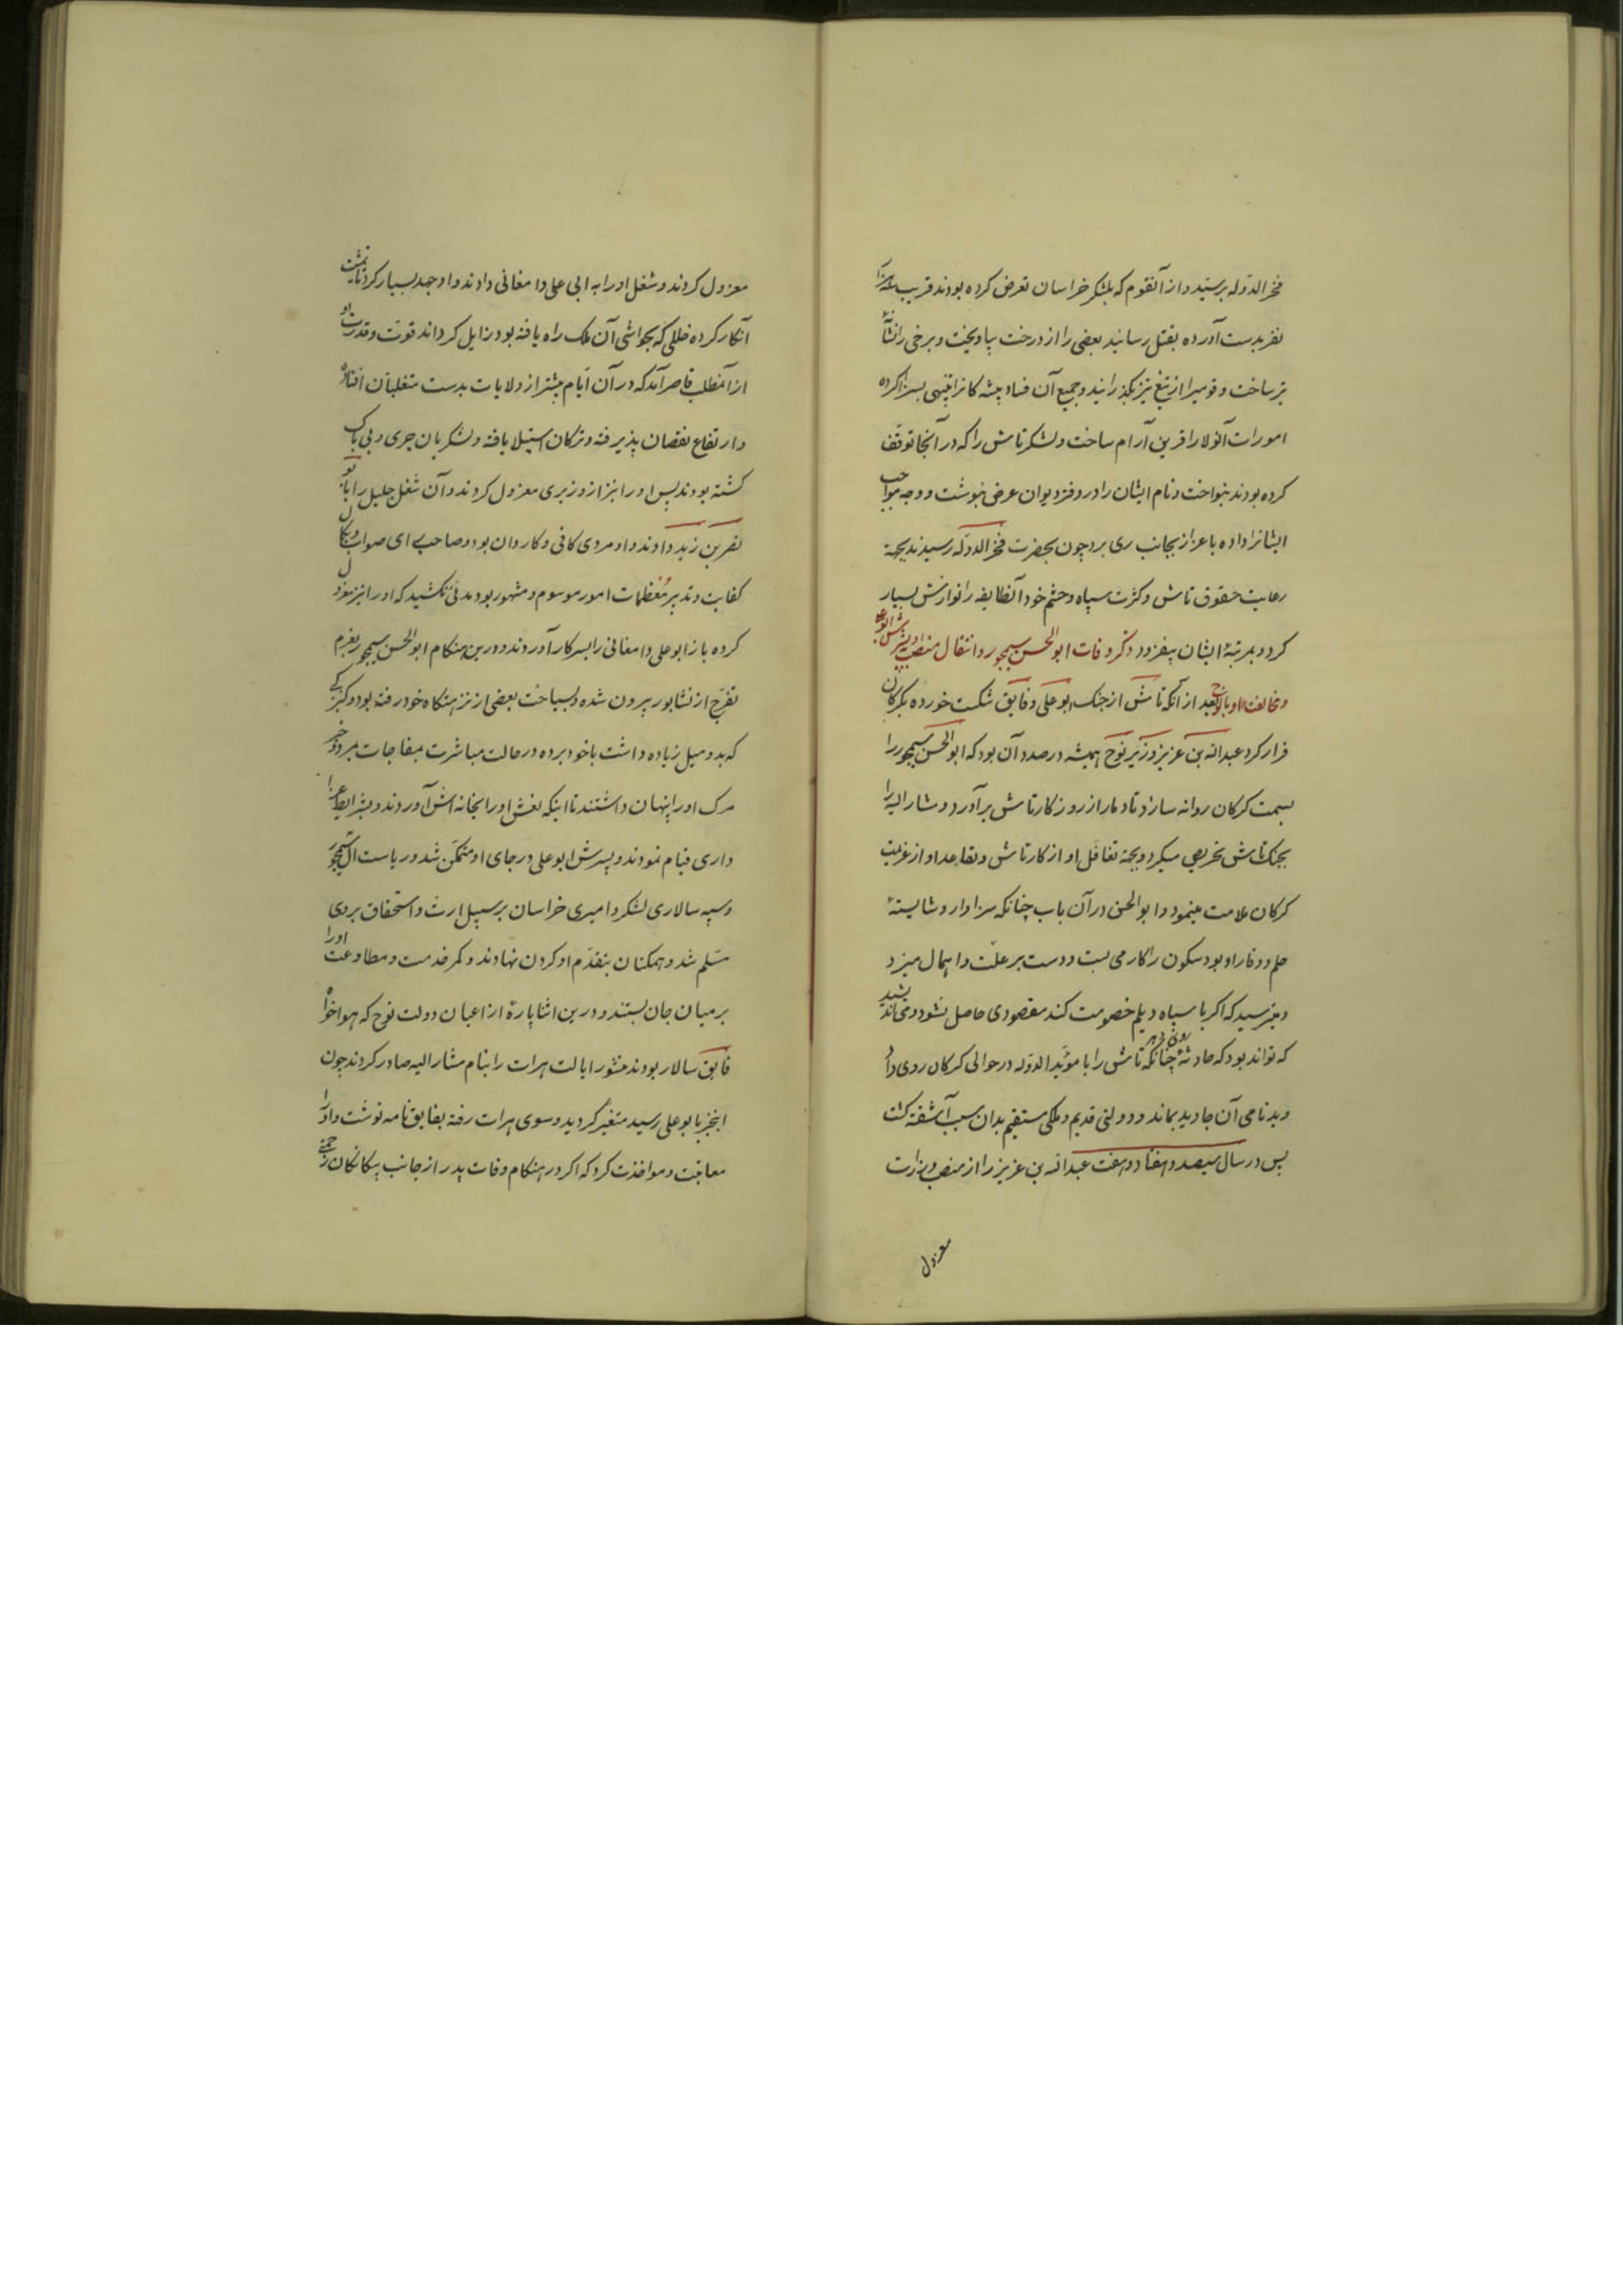 فخر الدوله برسید و از آنقوم که بلشکر خراسان تعرض کرده بودند قریب سه هزار
نفر بدست آورده بقتل رسانید بعضی را از درخت بیاویخت و برخی را نشانهٔ
تیر ساخت و قومیرا از تیغ تیز بگذرانید و جمیع آن فساد پیشه کانرا تنبیهی بسزا کرده
امورات آنولا را قرین آرام ساخت و لشکر تاش را که در آنجا توقف
کرده بودند بنواخت و نام ایشان را در دفتر دیوان عرض بنوشت و وجه مواجب
ایشانرا داده با عزاز بجانب ری برد چون بحضرت فخر الدوله رسیدند بجهة
رعایت حقوق تاش و کثرت سپاه و حشم خود آنطایفه را نوازش بسیار
کرد و بمرتبهٔ ایشان بیفزود ذکر وفات ابو الحسن سیمجور و انتقال منصب او بپسرش ابو علی
و مخالفت او با نوح بعد از آنکه تاش از جنک ابو علی و فایق شکست خورده بکرکان
فرار کرد عبدالله بن عزیز وزیر نوح همیشه در صدد آن بود که ابو الحسن سیمجور را
بسمت کرکان روانه سازد تا دمار از روزکار تاش برآورد و مشار الیه را
بجنک تاش تحریص میکرد و بجهة تغافل او از کار تاش و تقاعد او از عزیمت
کرکان ملامت مینمود و ابو الحسن در آن باب چنانکه سزاوار و شایستهٔ
حلم و وقار او بود سکون را کار می بست و دست بر علت و اهمال میزد
و میترسید که اکر با سپاه دیلم خصومت کند مقصودی حاصل نشود و می اندیشید
که تواند بود که حادثهٔ رو دهد چنانکه تاش را با مؤید الدوله در حوالی کرکان روی داد
و بدنامی آن جاوید بماند و دولتی قدیم و ملکی مستقیم بدان سبب آشفته کشت
پس در سال سیصد و هفتاد و هفت عبدالله بن عزیز را از منصب وزارت
معزول
معزول کردند و شغل او را به ابی علی دامغانی دادند و او جهد بسیار کرد تا بتمشیت
آنکار کرده خللی که بحواشی آن ملک راه یافته بود زایل کرداند قوت و قدرت او
از آنمطلب قاصر آمد که در آن ایام بیشتر از ولایات بدست متغلبان افتاده
و ارتفاع نقصان پذیرفته و ترکان استیلا یافته و لشکریان جری و بی باک
کشته بودند پس او را نیز از وزیری معزول کردند و آن شغل جلیل را بابو
نصر بن زید دادند و او مردی کافی و کاردان بود و صاحب رای صواب و بکمال
کفایت و تدبیر معظمات امور موسوم و مشهور بود مدتی نکشید که او را نیز معزول
کرده باز ابو علی دامغانی را بسر کار آوردند و درین هنکام ابو الحسن سیمجور بعزم
تفرج از نشابور بیرون شده و بسیاحت بعضی از نزهتکاه خود رفته بود و کنیزکی
که بدو میل زیاده داشت با خود برده در حالت مباشرت بمفاجات بمرد و خبر
مرک او را پنهان داشتند تا اینکه نعش او را بخانه اش آوردند و بشرایط عزا
داری قیام نمودند و پسرش ابو علی در جای او متمکن شد و ریاست آل سیمجور
و سپه سالاری لشکر و امیری خراسان بر سبیل ارث و استحقاق بروی
مسلم شد و همکنان بتقدم او کردن نهادند و کمر خدمت و مطاوعت او را
بر میان جان بستند و درین اثنا پارهٔ از اعیان دولت نوح که هواخواه
فایق سالار بودند منشور ایالت هرات را بنام مشار الیه صادر کردند چون
اینخبر بابو علی رسید متغیر کردید و سوی هرات رفته بفایق نامه نوشت و او را
معاتبت و مواخذت کرد که اکر در هنکام وفات پدر از جانب بیکانکان زحمتی